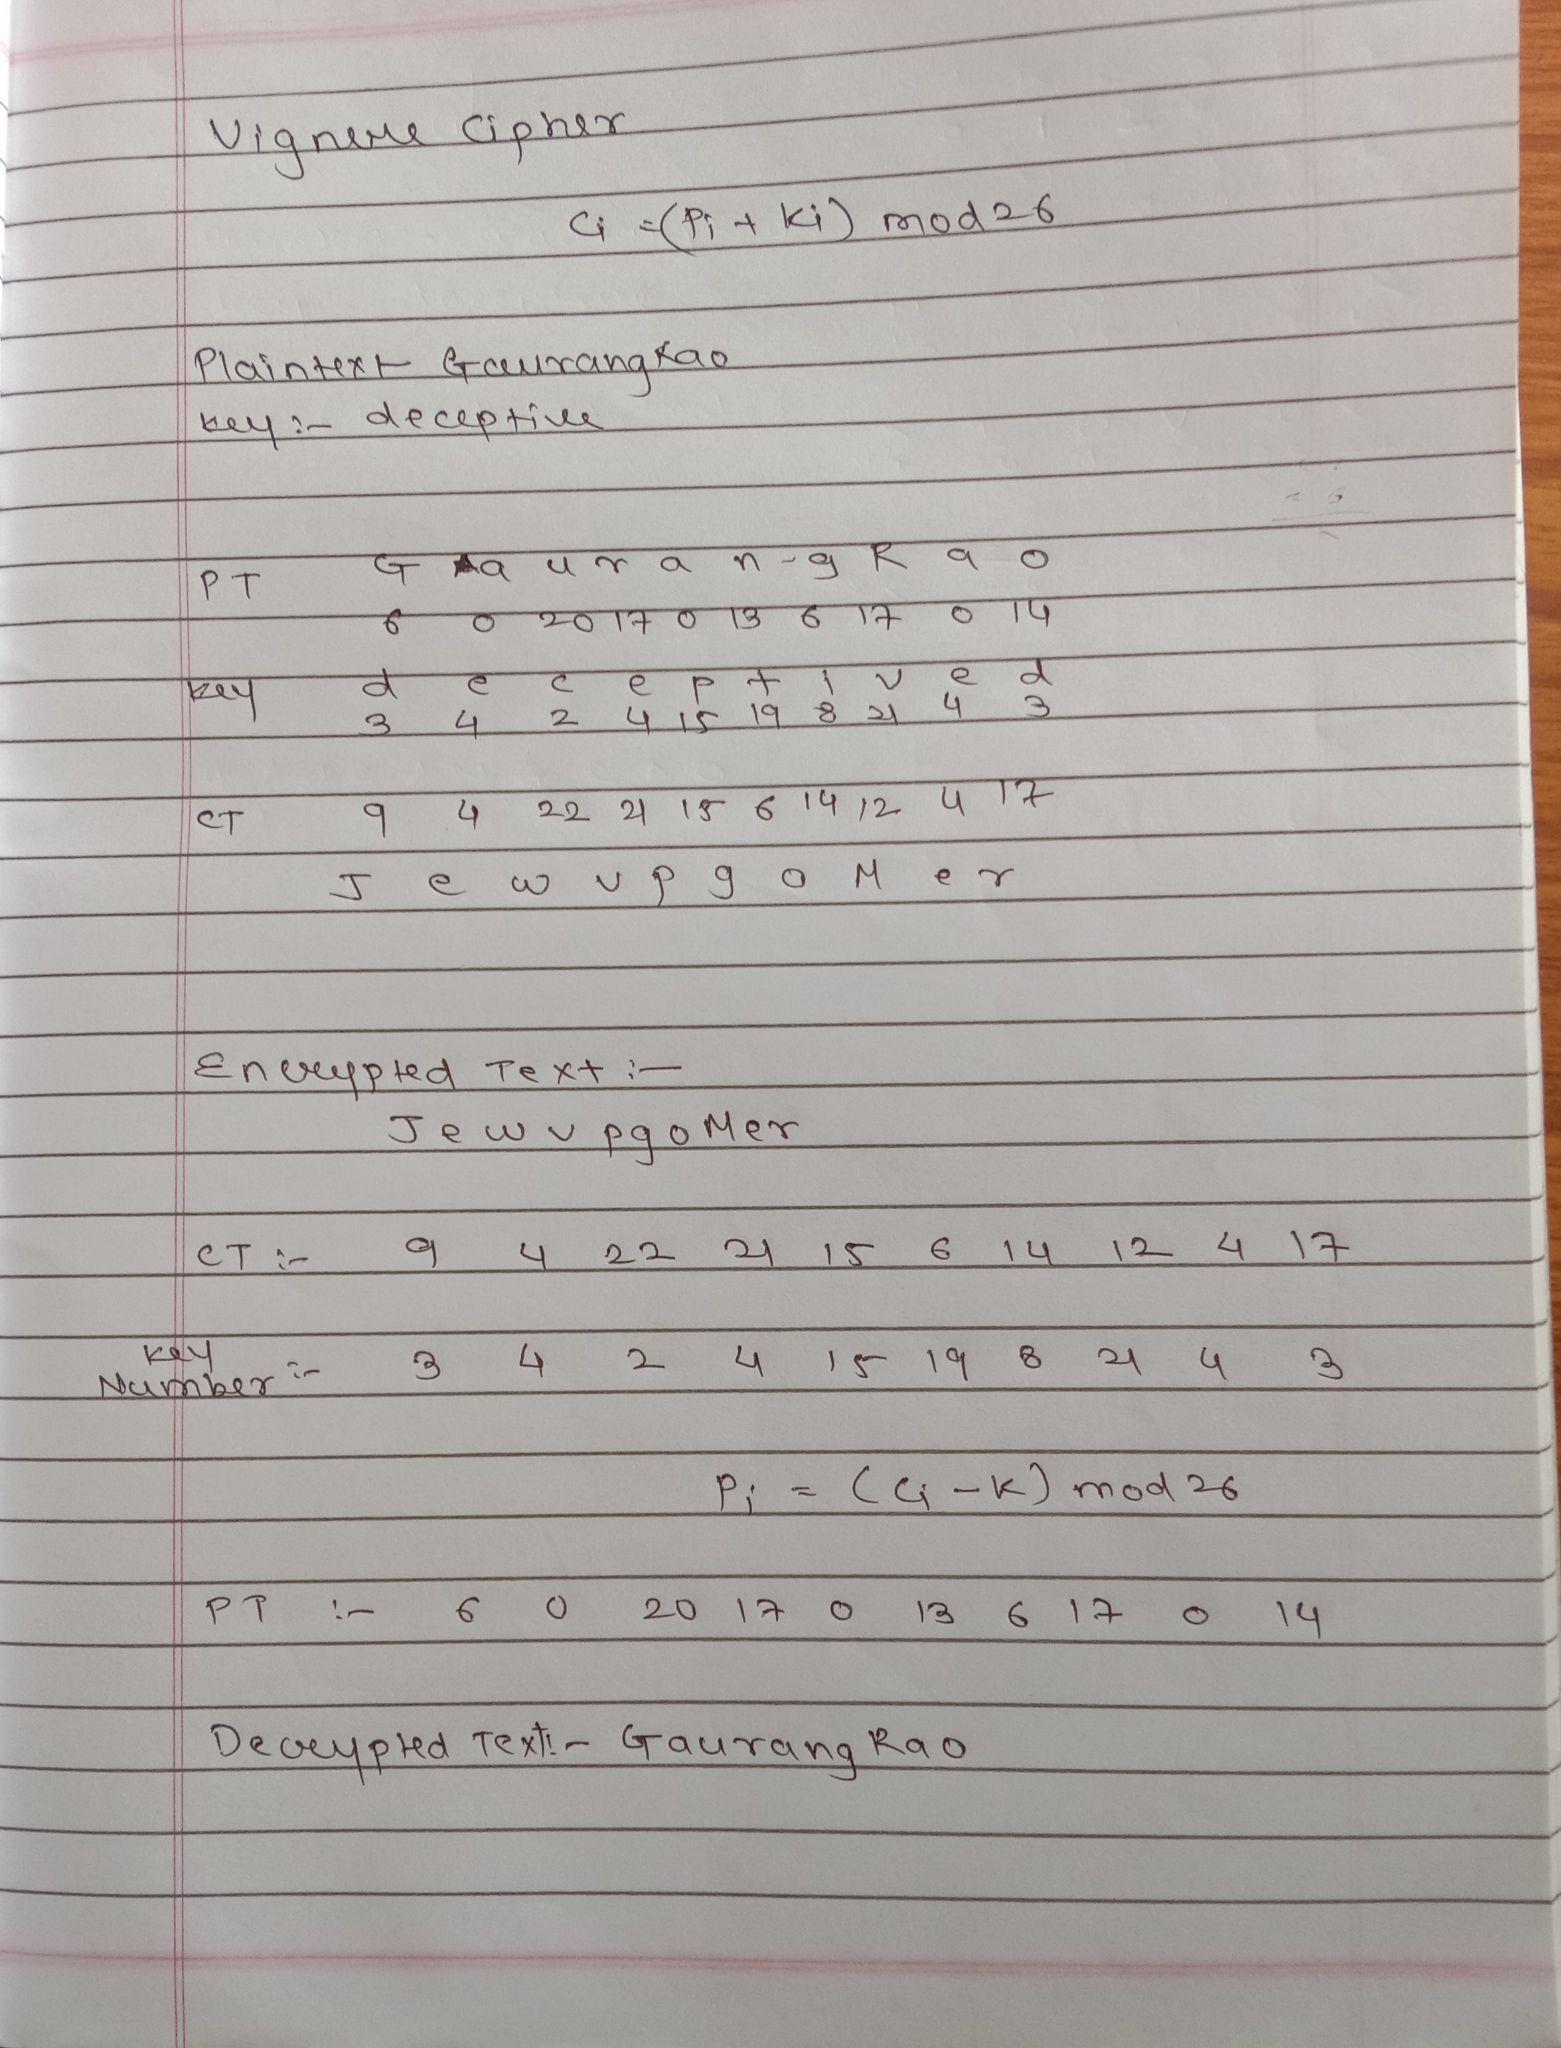 Vignere Cipher
Ci = (Pi + Ki) mod 26
Plaintext GaurangRao
key :- deceptive
PT G a u r a n - g R a o
6 0 20 17 0 13 6 17 0 14
key d e c e p t i v e d
3 4 2 4 15 19 8 21 4 3
CT 9 4 22 21 15 6 14 12 4 17
J e w v p g o M e r
Encrypted Text :-
JewvpgoMer
CT :- 9 4 22 21 15 6 14 12 4 17
key
Number :- 3 4 2 4 15 19 8 21 4 3
Pi = (Ci - K) mod 26
PT :- 6 0 20 17 0 13 6 17 0 14
Decrypted Text :- Gaurang Rao